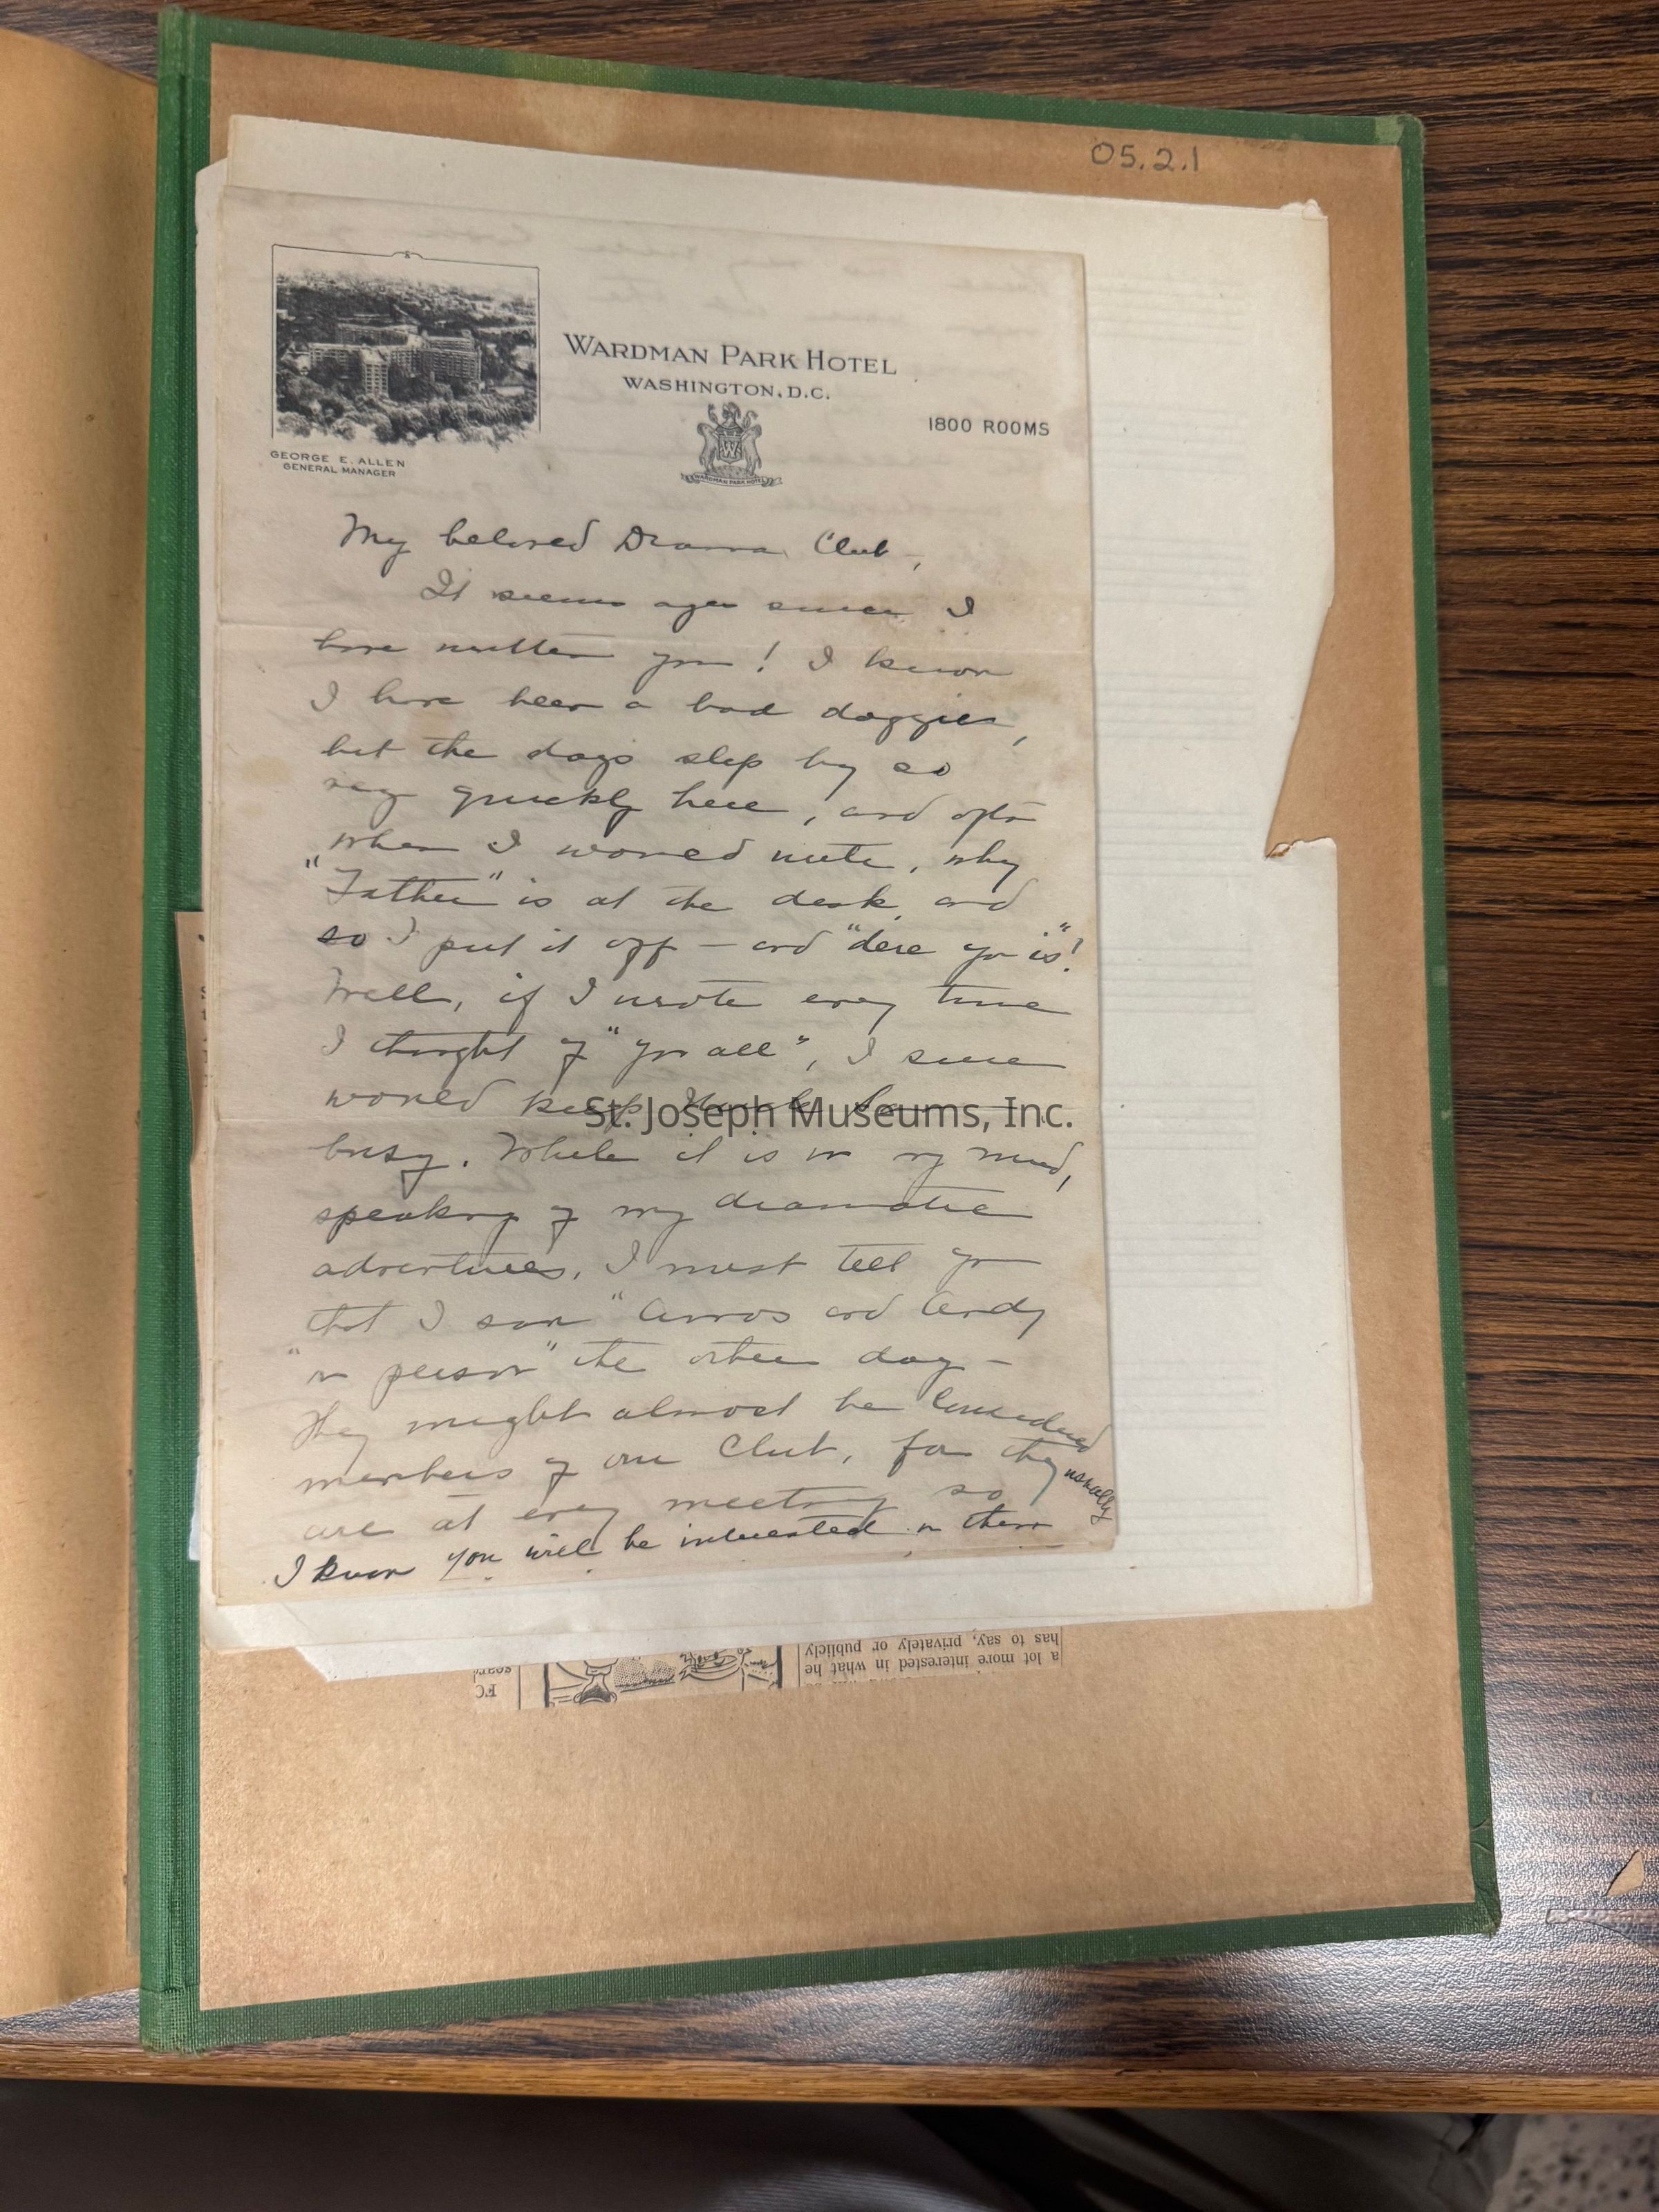 05.2.1
WARDMAN PARK HOTEL
WASHINGTON, D.C.
1800 ROOMS
GEORGE E. ALLEN
GENERAL MANAGER
W
WARDMAN PARK HOTEL
My beloved Drama Club,
It seems ages since I
have written you! I know
I have been a bad doggies,
but the days slip by so
very quickly here, and often
when I would write, why
"Father" is at the desk and
so I put it off - and "dere yo is"!
Well, if I wrote every time
I thought of "you all", I sure
would keep Uncle Sam
busy. While it is in my mind,
speaking of my dramatic
adventures, I must tell you
that I saw "Amos and Andy
"in person" the other day -
They might almost be considered
members of our Club, for they usually
are at every meeting so
I know you will be interested in them
St. Joseph Museums, Inc.
a lot more interested in what he
has to say, privately or publicly
FC
soar